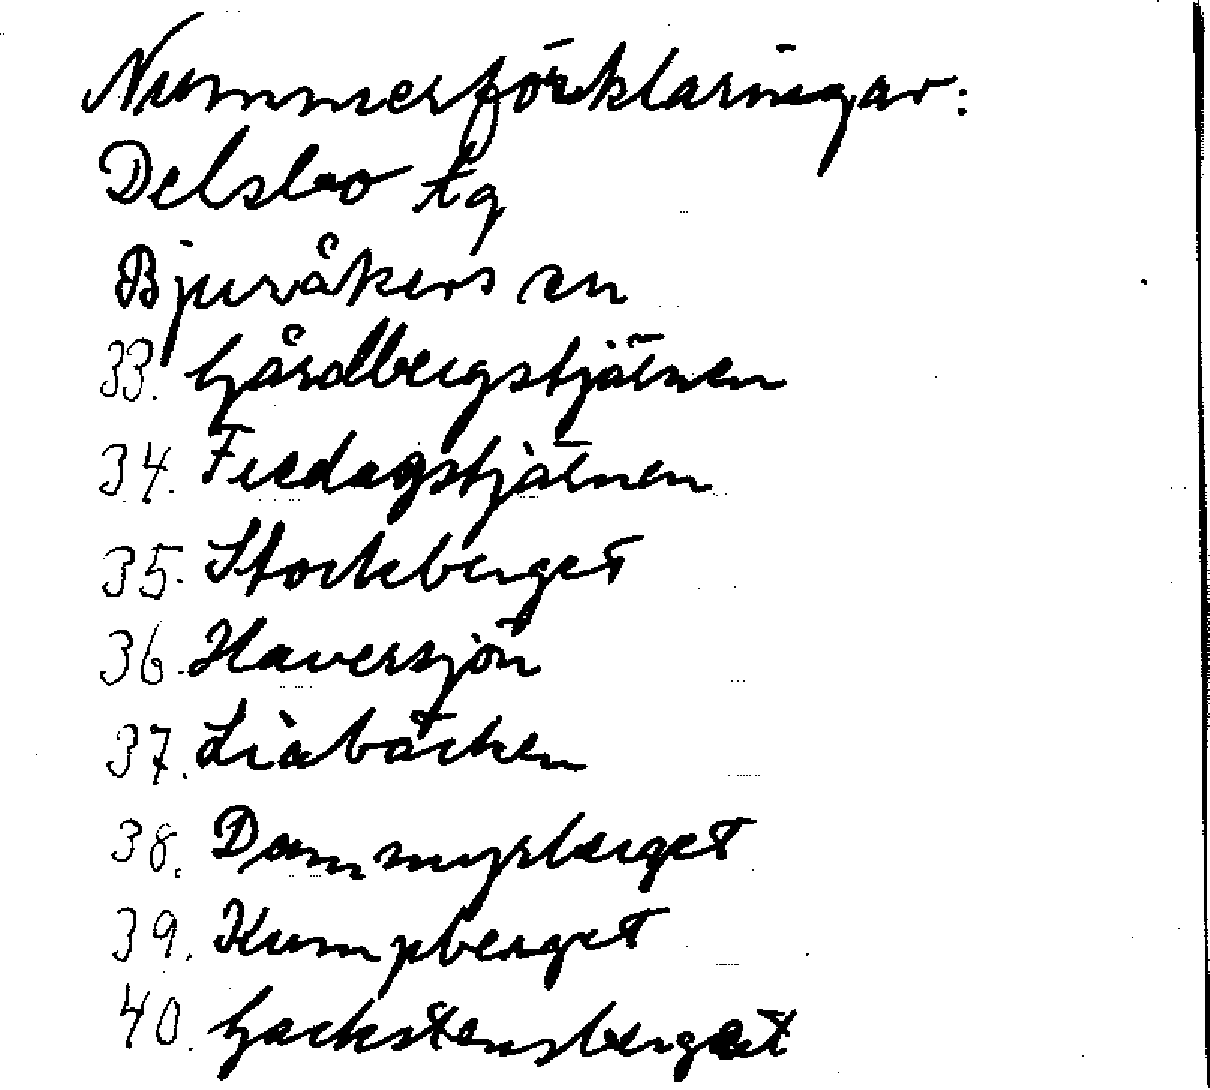 Nummerförklaringar:
Delsbo tg
Bjuråkers sn
33. Gårdbergstjärnen
34. Fredagstjärnen
35. Stockberget
36. Haversjön
37. Liabäcken
38. Dammyrberget
39. Kumpberget
40. Gackstensberget